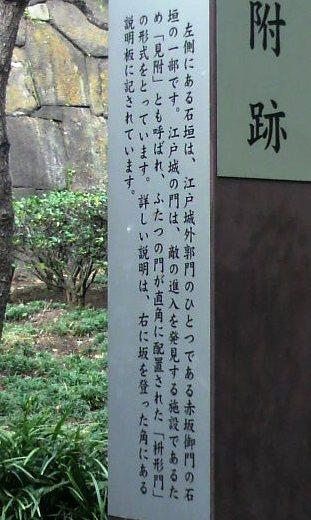 附跡
左側にある石垣は、江戸城外郭門のひとつである赤坂御門の石
垣の一部です。江戸城の門は、敵の進入を発見する施設であるた
め「見附」とも呼ばれ、ふたつの門が直角に配置された「枡形門」
の形式をとっています。詳しい説明は、右に坂を登った角にある
説明板に記されています。